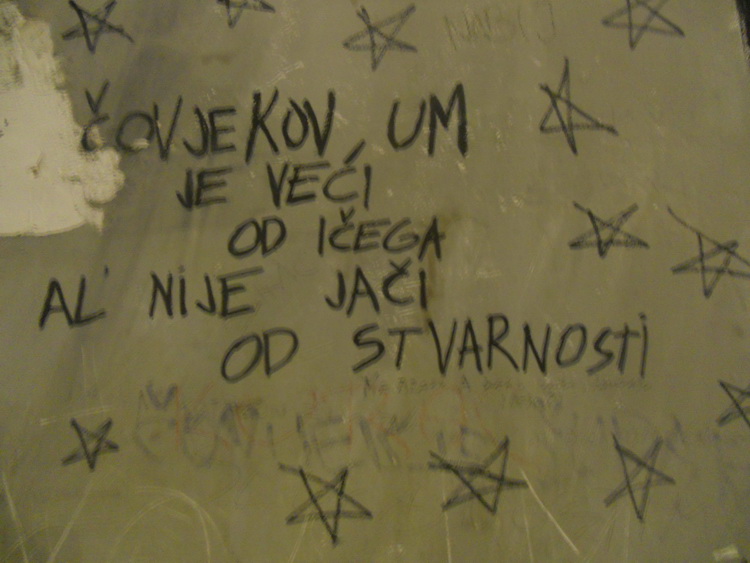 ČOVJEKOV UM
JE VEĆI
OD IČEGA
AL' NIJE JAČI
OD STVARNOSTI